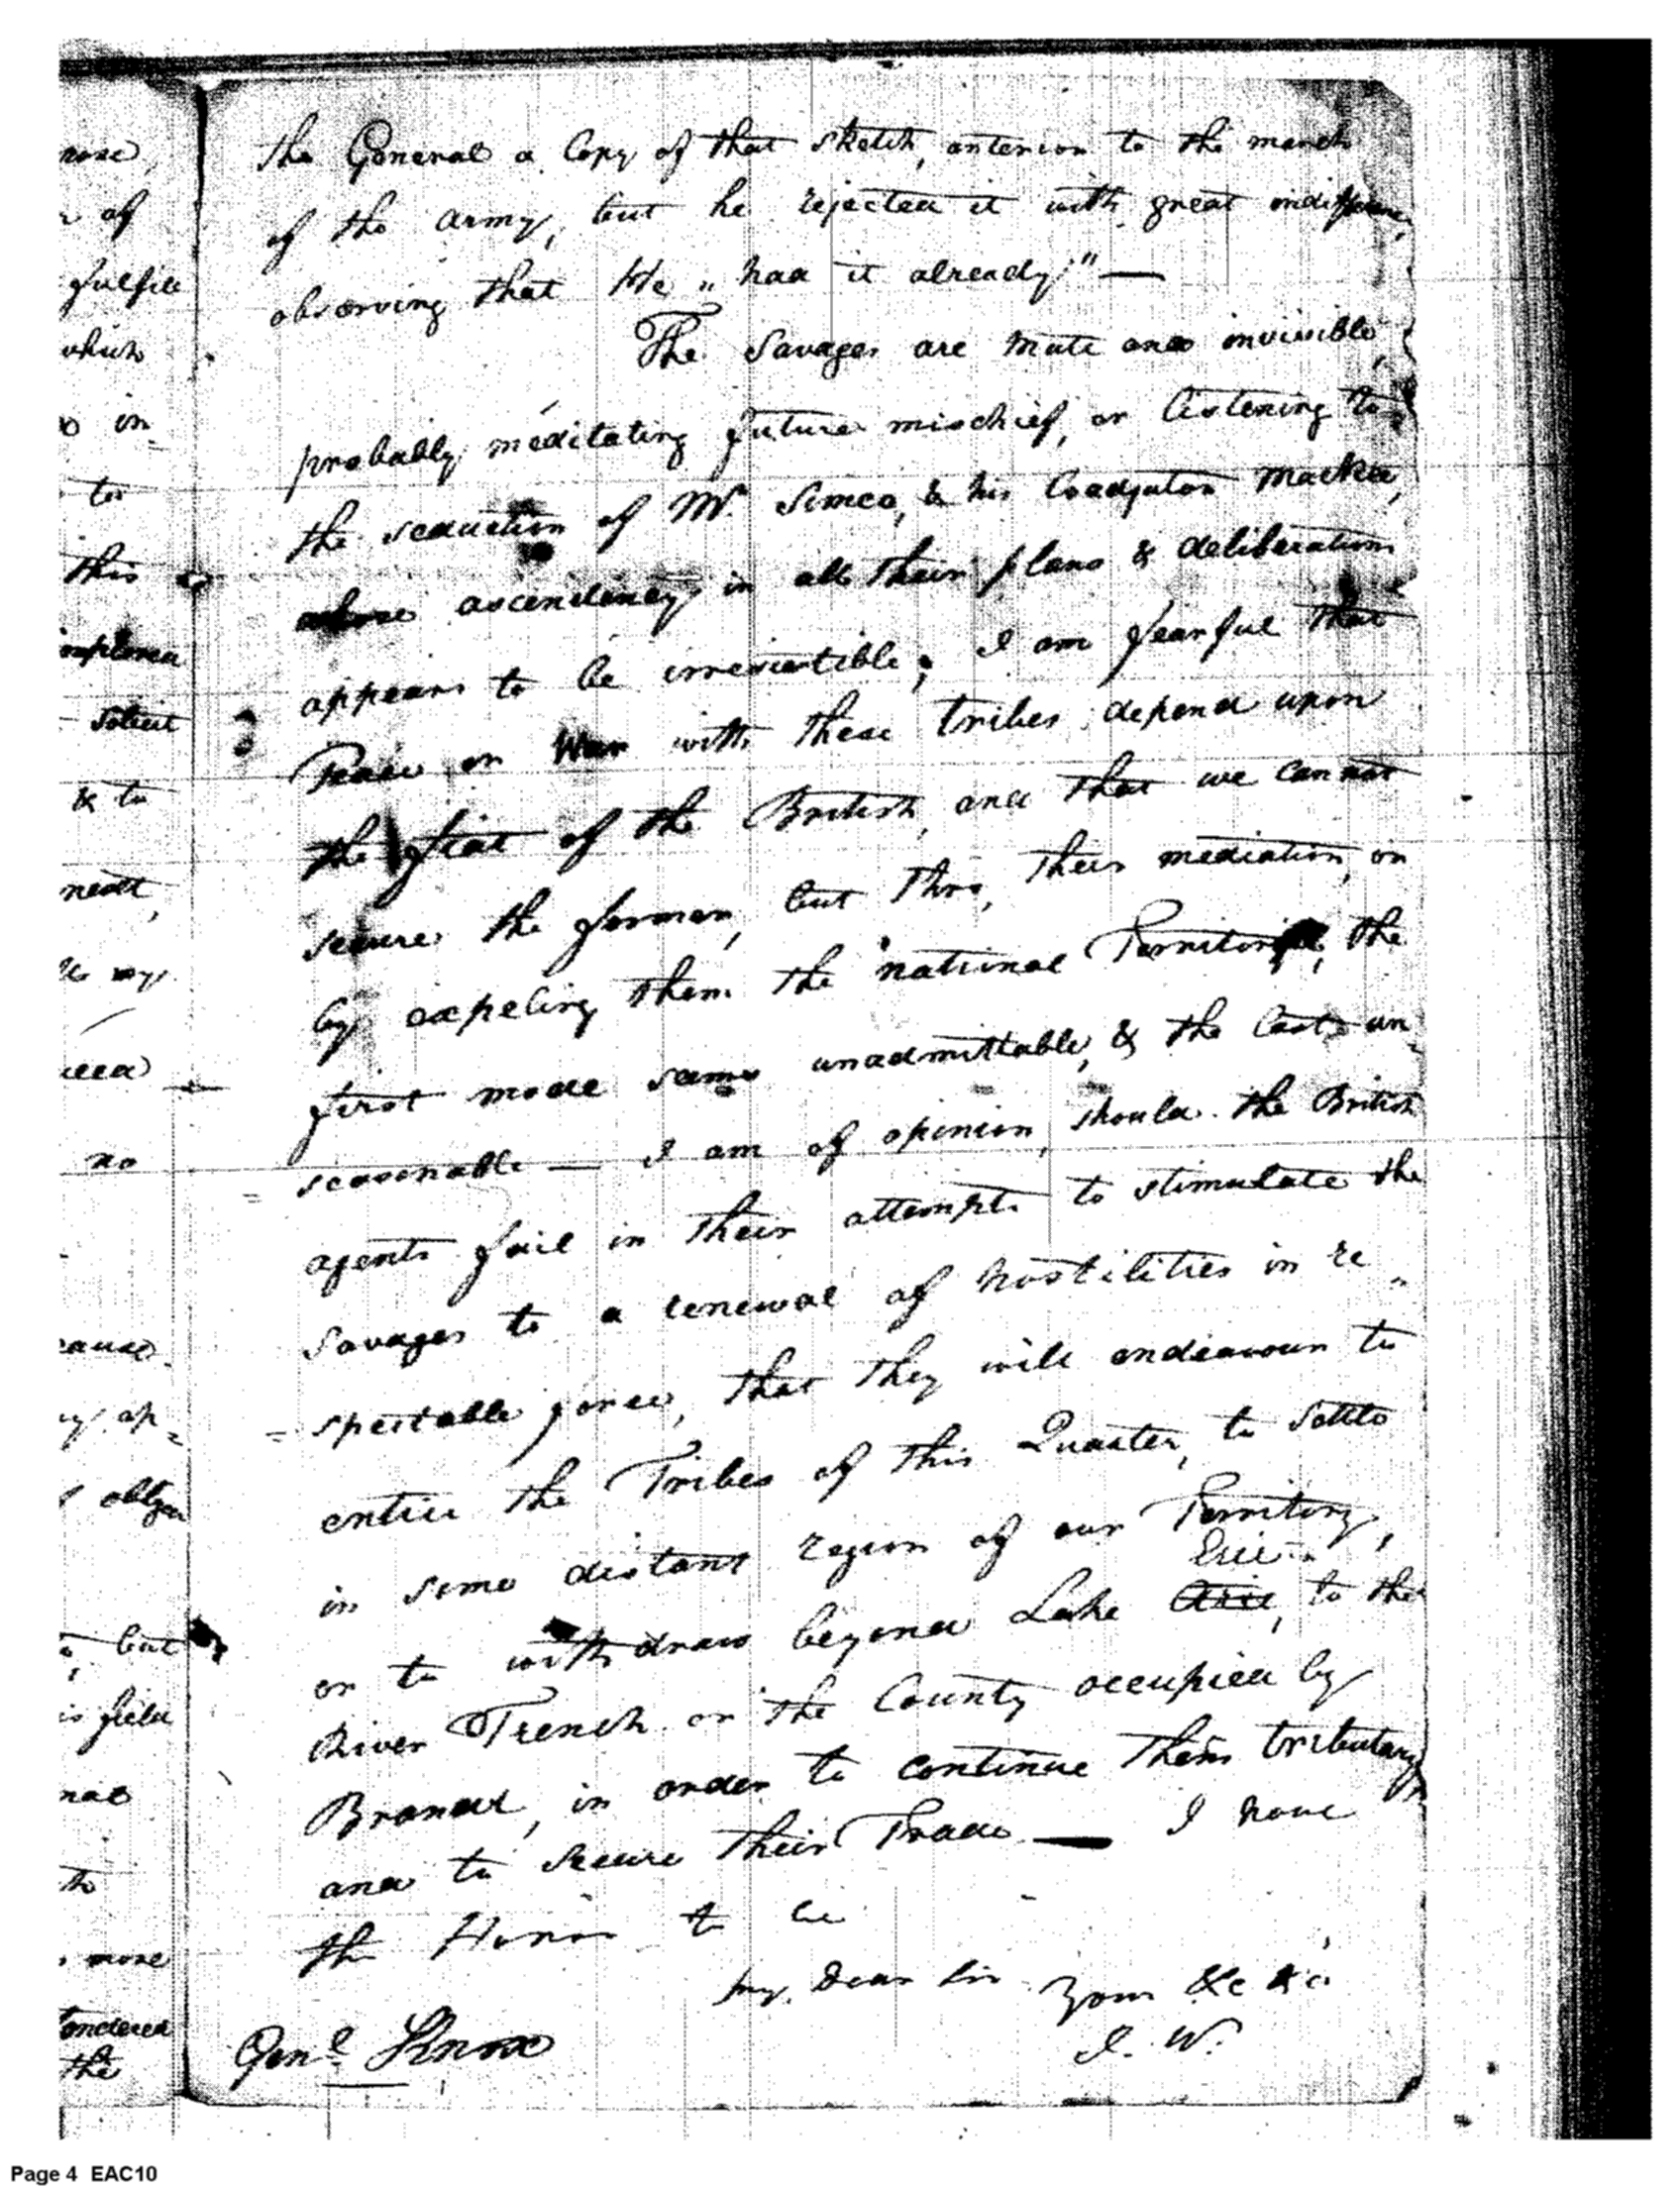 the General a Copy of that sketch, anterior to the march
of the army, but he rejected it with great indifference,
observing that He „ had it already;" —
The Savages are mute and invisible,
probably meditating future mischief, or listening to
the seduction of Mr. Simco, & his Coadjutor Mackee,
whose ascendency in all their plans & deliberations
appears to be irresistible; I am fearful that
Peace or War with these tribes depend upon
the fiat of the British, and that we can not
secure the former, but thro, their mediation, or
by expeling them the national Territory, the
first mode seems unadmittable, & the last un„
= seasonable — I am of opinion, should the British
agents fail in their attempts to stimulate the
Savages to a renewal of hostilities in re„
= spectable force, that they will endeavour to
entice the Tribes of this Quarter, to settle
in some distant region of our Territory,
Erie
or to withdraw beyond Lake Arie, to the
River Trench or the County occupied by
Brandt, in order to continue them tributary
and to secure their Trade — I have
the Honor to be
my Dear Sir Your &c &c.
J. W.
Genl. Knox
more
of
fulfill
which
in
to
this
implored
solicit
& to
neath,
my
no
cause
ap=
obliged
but
is field
to
more
the
Page 4 EAC10